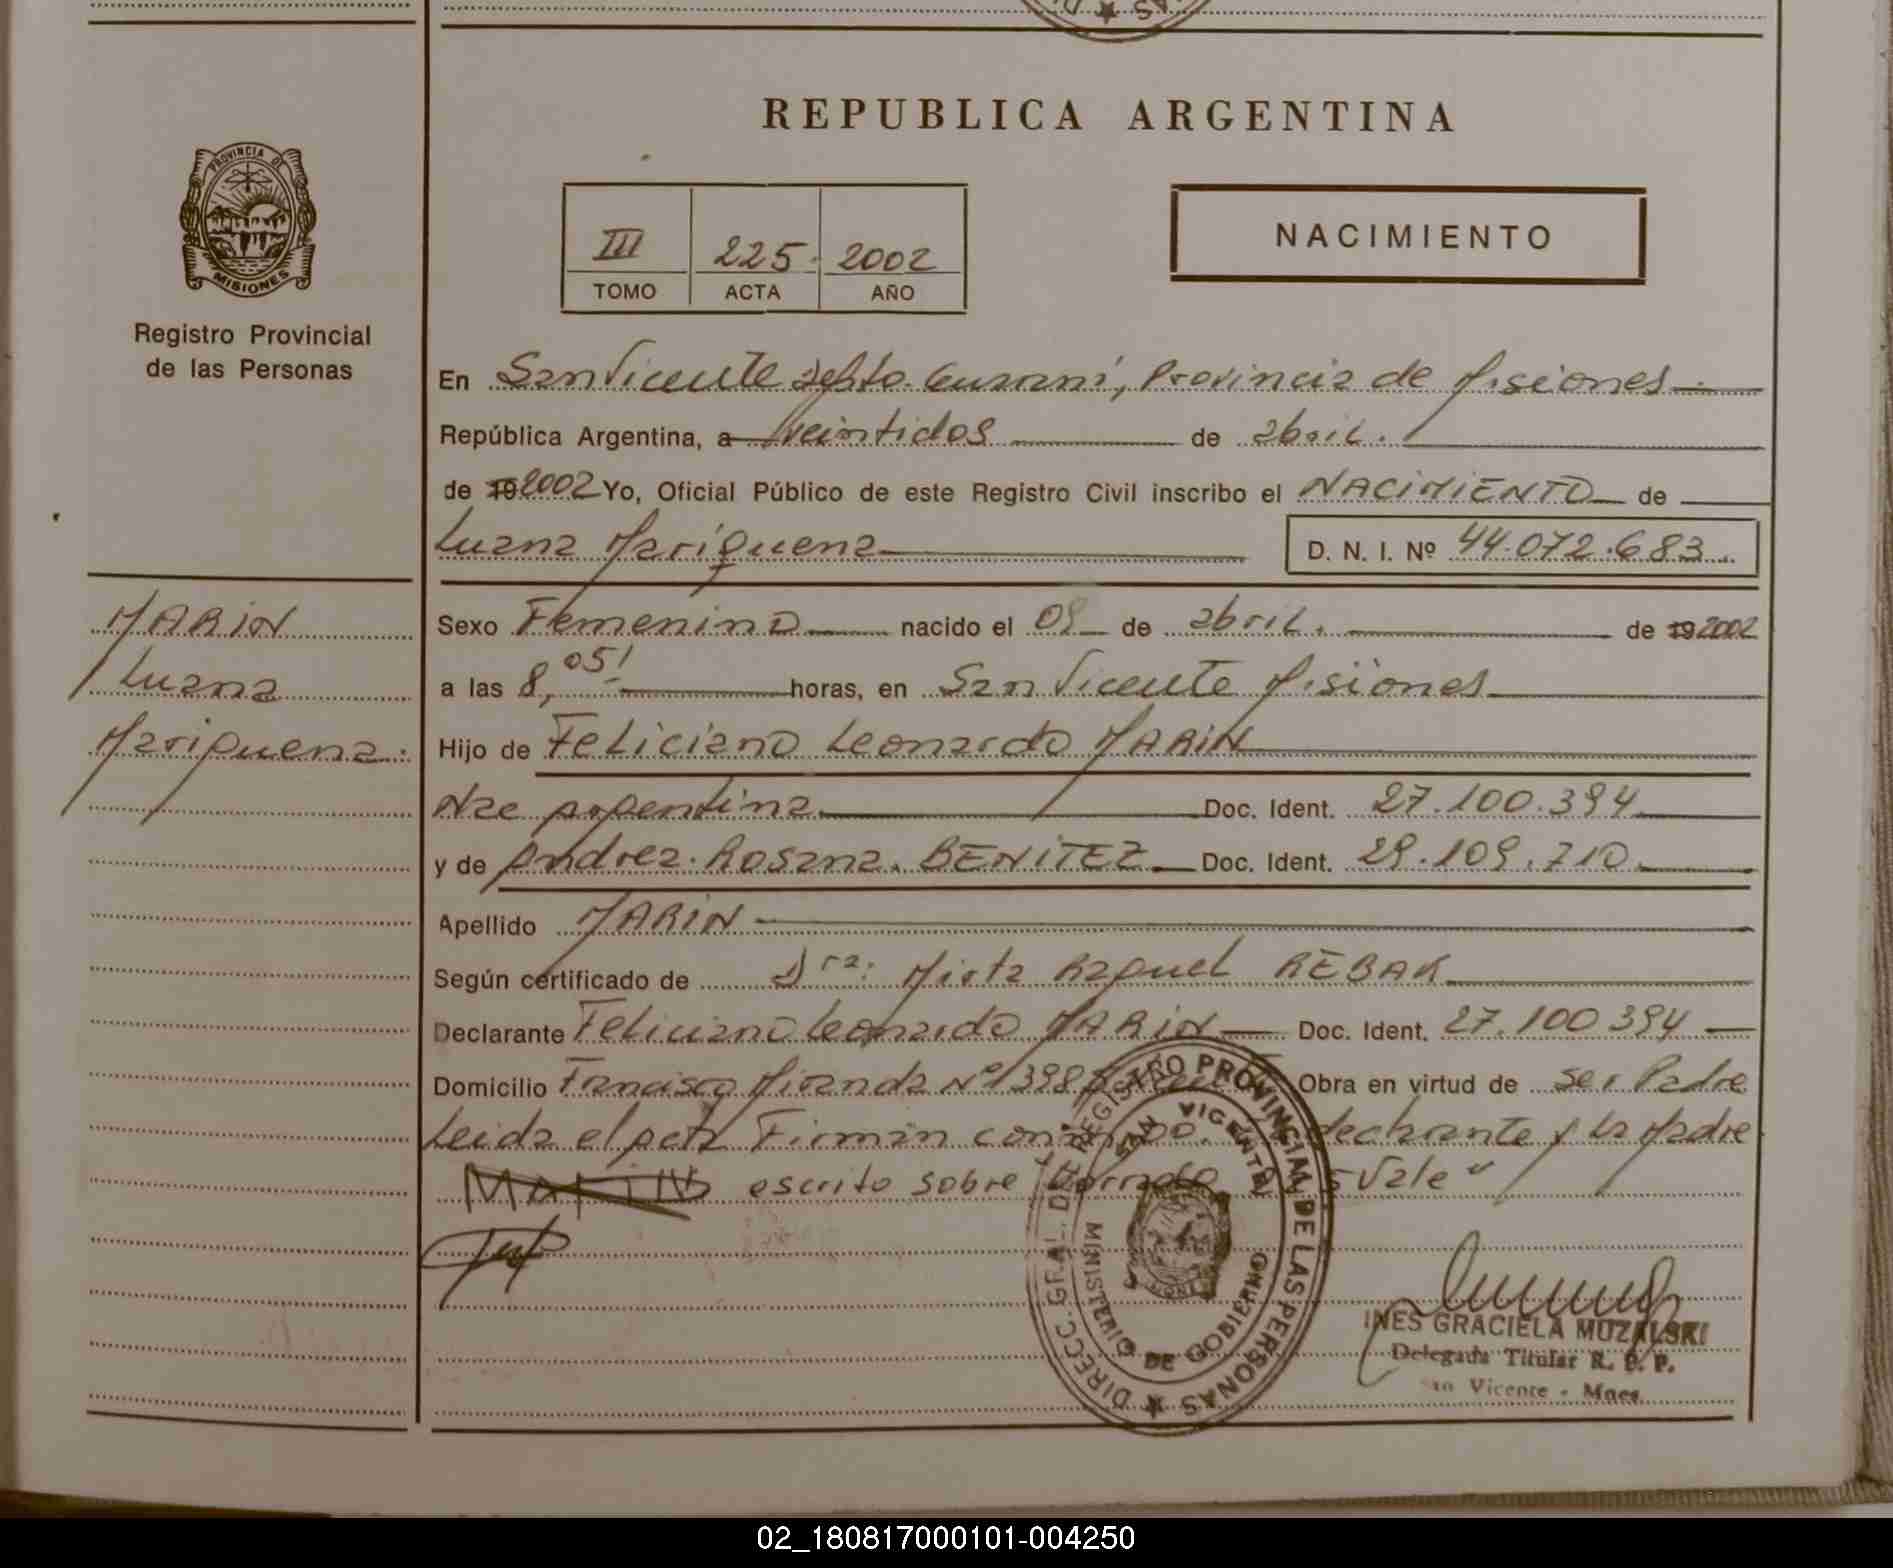 REPUBLICA ARGENTINA
PROVINCIA DE
MISIONES
Registro Provincial
de las Personas
III 225. 2002
TOMO ACTA AÑO
NACIMIENTO
En San Vicente Depto. Guaraní, Provincia de Misiones
República Argentina, a veintidos de abril.
de 19 2002 Yo, Oficial Público de este Registro Civil inscribo el NACIMIENTO de
Luana Mariquena D. N. I. Nº 44.072.683.
MARIN
Luana
Mariquena.
Sexo Femenino nacido el 09 de abril. de 19 2002
a las 8,05' horas, en San Vicente Misiones
Hijo de Feliciano Leonardo MARIN
Nac argentina Doc. Ident. 27.100.394
y de Andrea. Rosana. BENITEZ Doc. Ident. 29.109.710
Apellido MARIN
Según certificado de Dra. Mirta Raquel REBAK
Declarante Feliciano Leonardo MARIN Doc. Ident. 27.100394
Domicilio Francisco Miranda Nº 398 Obra en virtud de ser Padre
Leida el acta Firman declarante y la Madre
escrito sobre borrado Vale"
DIRECC. GRAL. DE REGISTRO PROVINCIAL DE LAS PERSONAS
SAN VICENTE
MINISTERIO DE GOBIERNO
INES GRACIELA MUZALSKI
Delegada Titular R. P. P.
San Vicente - Mnes.
02_180817000101-004250